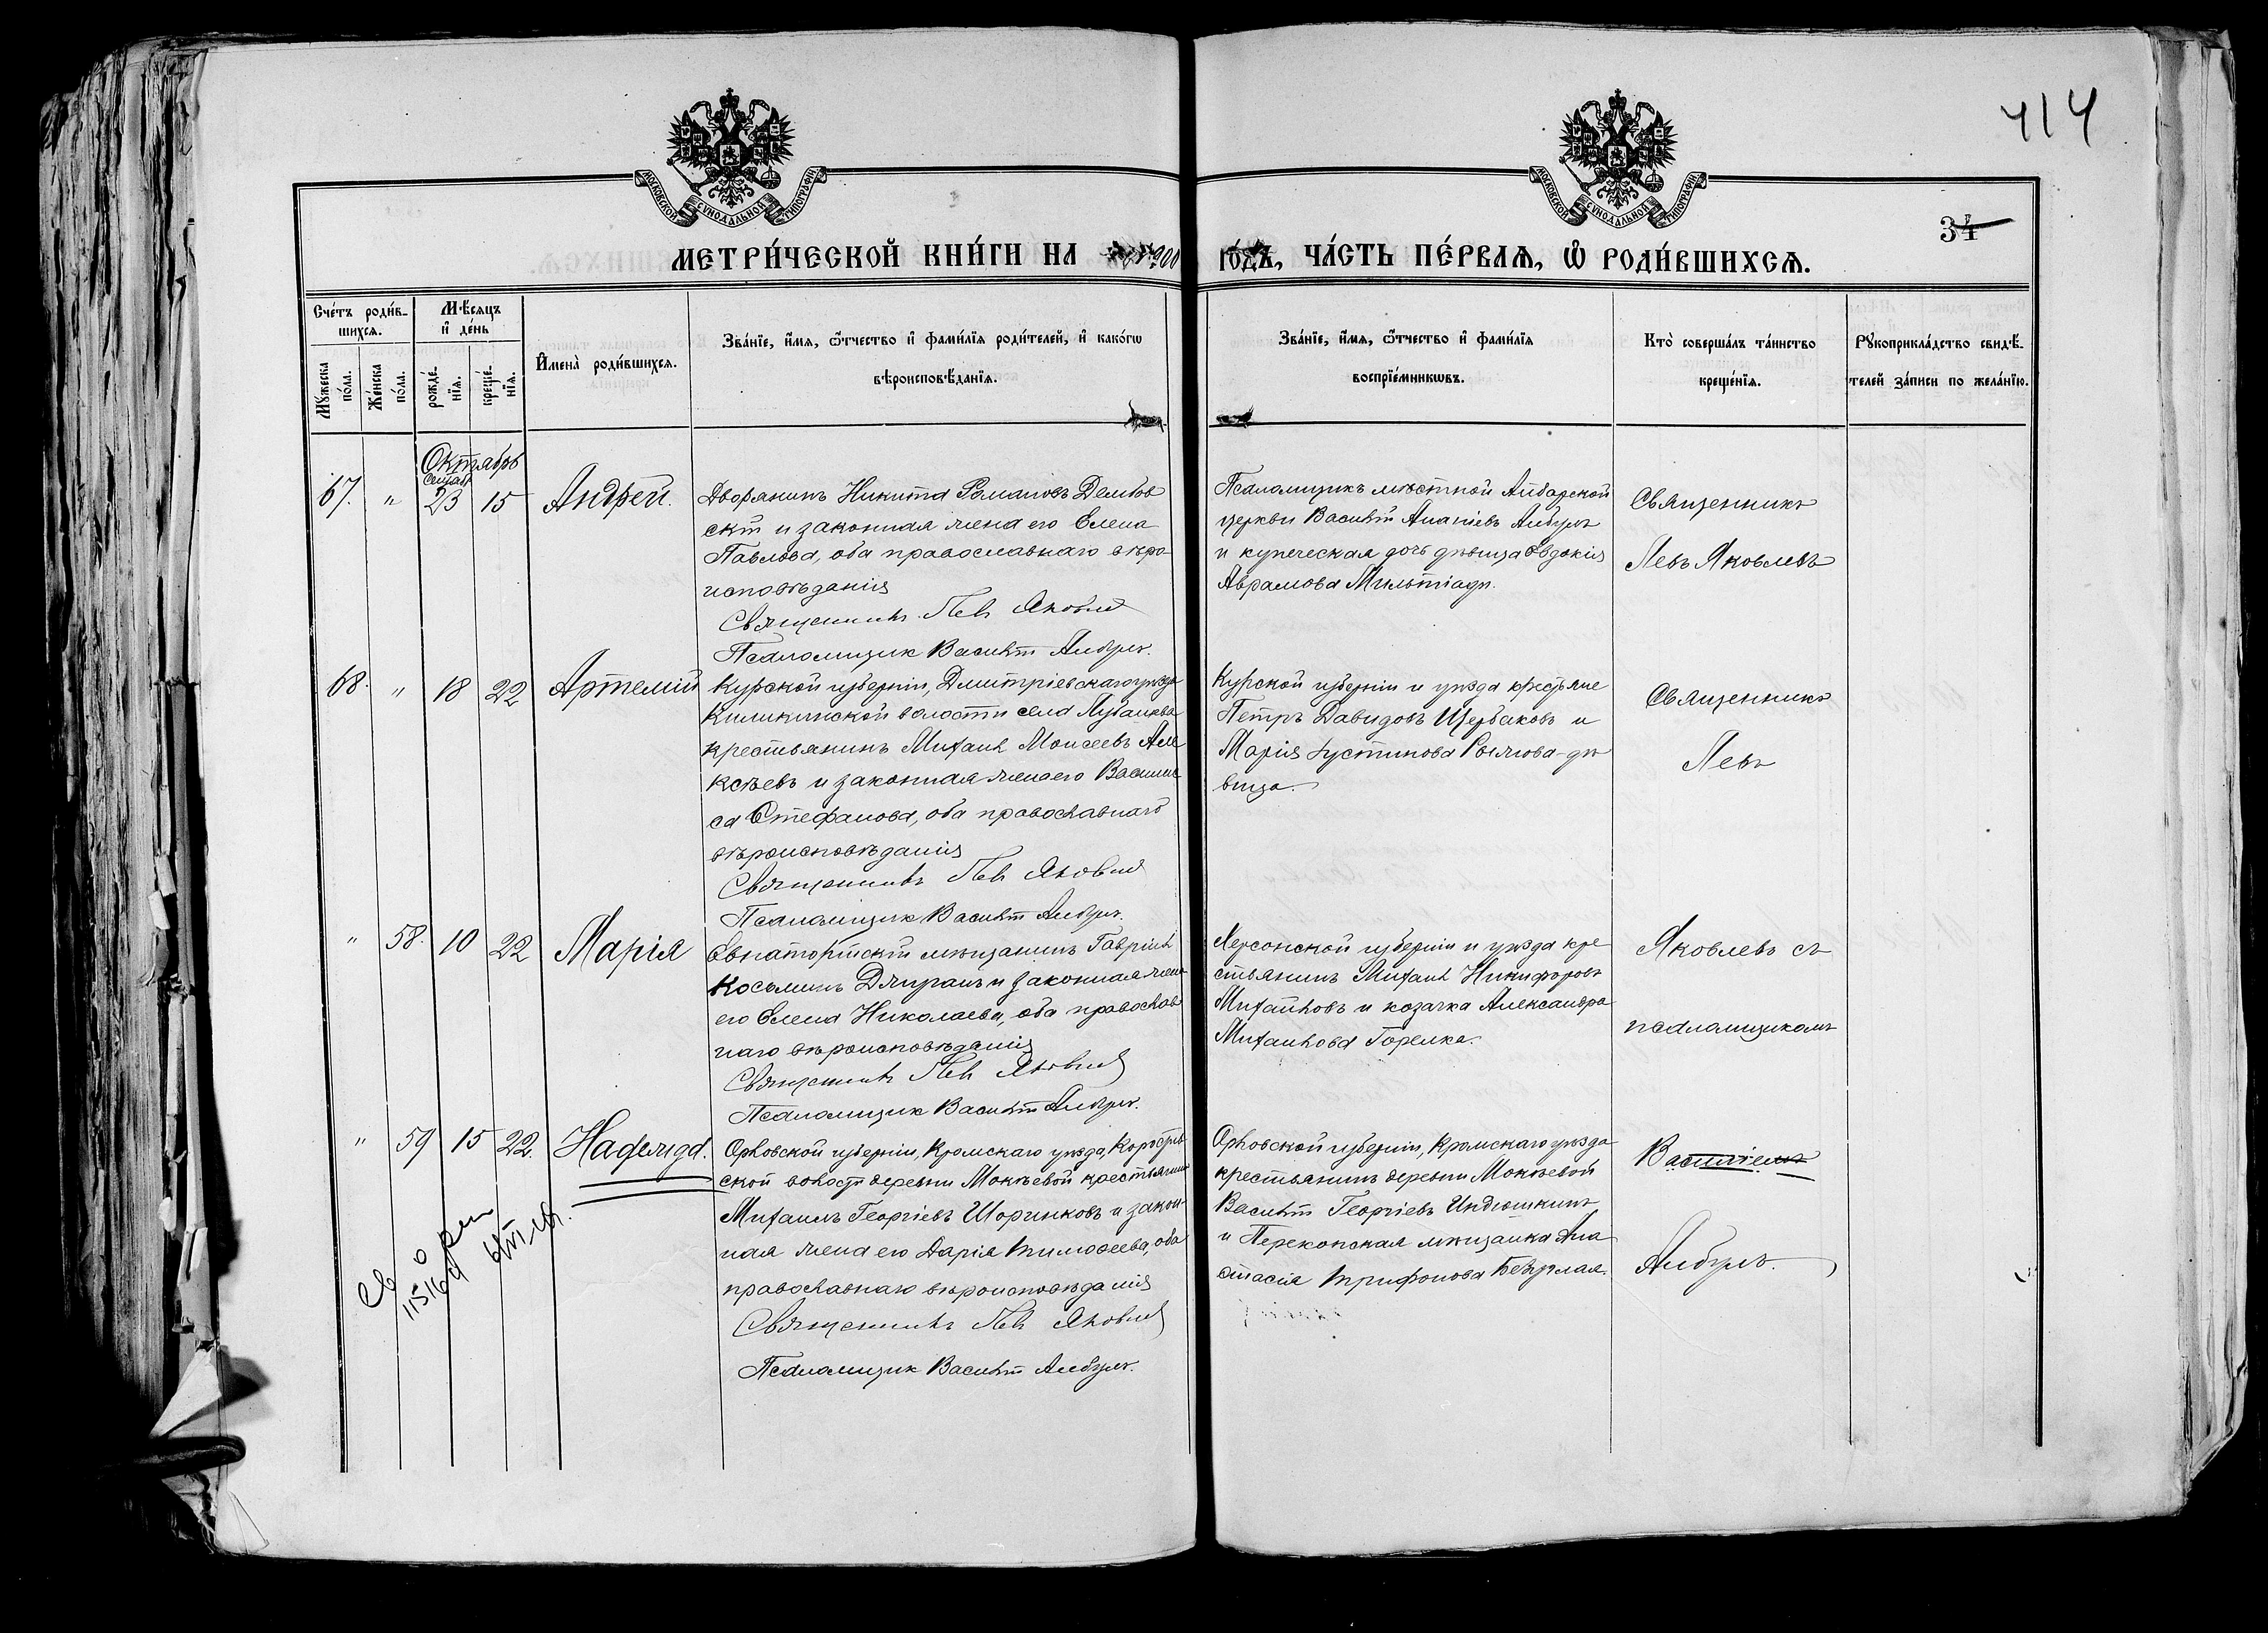 414
34
МОСКОВСКОЙ СѴНОДАЛЬНОЙ ТИПОГРАФІИ
МОСКОВСКОЙ СѴНОДАЛЬНОЙ ТИПОГРАФІИ
МЕТРИ́ЧЕСКОЙ КНИ́ГИ НА 1900 ГО́ДЪ, ЧА́СТЬ ПЕ́РВАѦ, Ѡ҆ РОДИ́ВШИХСѦ.
Сче́тъ роди́в-
шихсѧ.
Мꙋ́жеска по́ла.
Же́нска по́ла.
Мѣ́сѧцъ
и҆ де́нь
рожде́-
нїѧ.
креще́-
нїѧ.
И҆мена̀ роди́вшихсѧ.
Зва́нїе, и҆́мѧ, ѻ҆́тчество и҆ фами́лїѧ роди́телей, и҆ како́гѡ
вѣроисповѣ́данїѧ.
Зва́нїе, и҆́мѧ, ѻ҆́тчество и҆ фами́лїѧ
воспрїе́мникѡвъ.
Кто̀ соверша́лъ та́инство
креще́нїѧ.
Рꙋкоприкла́дство свидѣ́-
телей за́писи по жела́нїю.
Октябрь
67. " Сентяб. 23 15 Андрей.
Дворянинъ Никита Романовъ Дембов
скій и законная жена его Елена
Павлова, оба православнаго вѣро-
исповѣданія
Священникъ Левъ Яковлев
Псаломщик Василій Анбузъ.
Псаломщикъ мѣстной Айбарской
церкви Василій Ананіевъ
и купеческая дочь дѣвица Евдокія
Аврамова Мильтіади.
Священникъ
Левъ Яковлевъ
68. " 18 22 Артемій
Курской губерніи, Дмитріевскаго уѣзда
волости села
крестьянинъ Михаил Моисеевъ Але
ксѣевъ и законная жена его Василис
са Стефанова, оба православнаго
вѣроисповѣданія
Священникъ Левъ Яковлев
Псаломщик Василій
Курской губерніи и уѣзда крестьяне
Петръ Давидовъ Щербаковъ и
Марія Іустинова дѣ
вица.
Священникъ
Левъ
" 58. 10 22 Марія
Евпаторійскій мѣщанинъ Гавріил
Косьминъ и законная жена
его Елена Николаева, оба православ
наго вѣроисповѣданія
Священникъ Левъ Яковлев
Псаломщик Василій
Херсонской губерніи и уѣзда кре
стьянинъ Михаил Никифоровъ
Михайловъ и козачка Александра
Михайлова Горелка.
Яковлевъ съ
псаломщикомъ
" 59 15 22. Надежда.
Орловской губерніи, Кромскаго уѣзда,
ской волости деревни Мокѣевой крестьянин
Михаилъ Георгіевъ Шоринковъ и закон-
ная жена его Дарія Тимофеева, оба
православнаго вѣроисповѣданія
Священникъ Левъ Яковлев
Псаломщик Василій
Орловской губерніи, Кромскаго уѣзда
крестьянинъ деревни Мокѣевой
Василій Георгіевъ Индюшкинъ
и Перекопская мѣщанка Ана
стасія Трифонова
Василіемъ